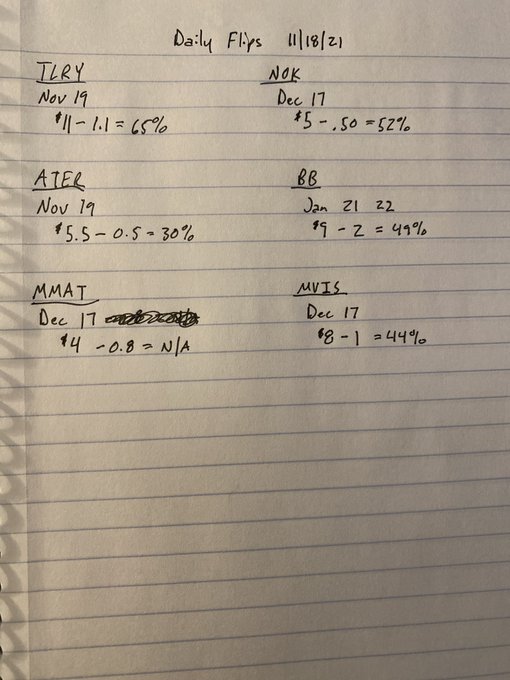 Daily Flips 11/18/21
TLRY
Nov 19
$11 - 1.1 = 65%
NOK
Dec 17
$5 - .50 = 52%
ATER
Nov 19
$5.5 - 0.5 = 30%
BB
Jan 21 22
$9 - 2 = 49%
MMAT
Dec 17
$4 - 0.8 = N/A
MVIS
Dec 17
$8 - 1 = 44%